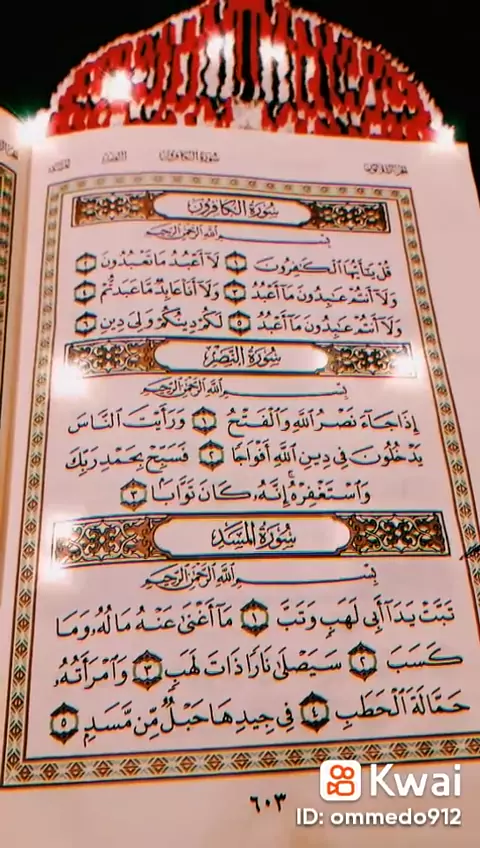 سورة الكافرون
سُورَةُ الكَافِرُونَ
بِسْمِ اللَّهِ الرَّحْمَٰنِ الرَّحِيمِ
قُلْ يَٰٓأَيُّهَا ٱلْكَٰفِرُونَ ١ لَآ أَعْبُدُ مَا تَعْبُدُونَ ٢
وَلَآ أَنتُمْ عَٰبِدُونَ مَآ أَعْبُدُ ٣ وَلَآ أَنَا۠ عَابِدٌ مَّا عَبَدتُّمْ ٤
وَلَآ أَنتُمْ عَٰبِدُونَ مَآ أَعْبُدُ ٥ لَكُمْ دِينُكُمْ وَلِىَ دِينِ ٦
سُورَةُ النَّصْرِ
بِسْمِ اللَّهِ الرَّحْمَٰنِ الرَّحِيمِ
إِذَا جَآءَ نَصْرُ ٱللَّهِ وَٱلْفَتْحُ ١ وَرَأَيْتَ ٱلنَّاسَ
يَدْخُلُونَ فِى دِينِ ٱللَّهِ أَفْوَاجًا ٢ فَسَبِّحْ بِحَمْدِ رَبِّكَ
وَٱسْتَغْفِرْهُ ۚ إِنَّهُۥ كَانَ تَوَّابًۢا ٣
سُورَةُ المَسَدِ
بِسْمِ اللَّهِ الرَّحْمَٰنِ الرَّحِيمِ
تَبَّتْ يَدَآ أَبِى لَهَبٍ وَتَبَّ ١ مَآ أَغْنَىٰ عَنْهُ مَالُهُۥ وَمَا
كَسَبَ ٢ سَيَصْلَىٰ نَارًا ذَاتَ لَهَبٍ ٣ وَٱمْرَأَتُهُۥ
حَمَّالَةَ ٱلْحَطَبِ ٤ فِى جِيدِهَا حَبْلٌ مِّن مَّسَدٍۭ ٥
٦٠٣
Kwai
ID: ommedo912